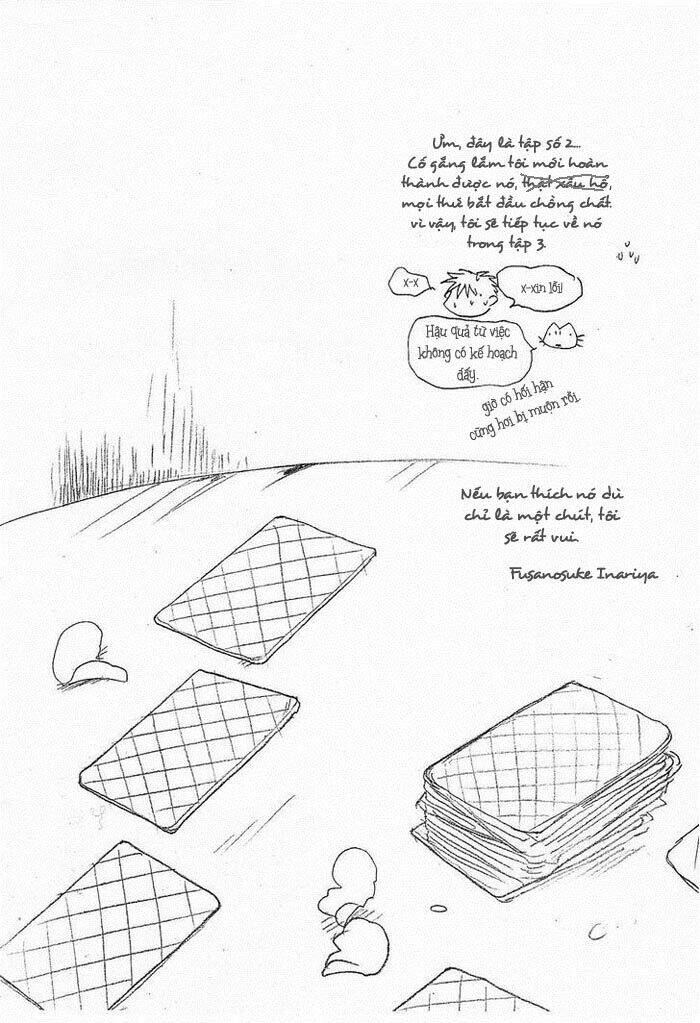 Ưm, đây là tập số 2...
Cố gắng lắm tôi mới hoàn
thành được nó, thật xấu hổ,
mọi thứ bắt đầu chồng chất.
vì vậy, tôi sẽ tiếp tục về nó
trong tập 3.
x-x
x-xin lỗi!
Hậu quả từ việc
không có kế hoạch
đấy.
giờ có hối hận
cũng hơi bị muộn rồi.
Nếu bạn thích nó dù
chỉ là một chút, tôi
sẽ rất vui.
Fusanosuke Inariya